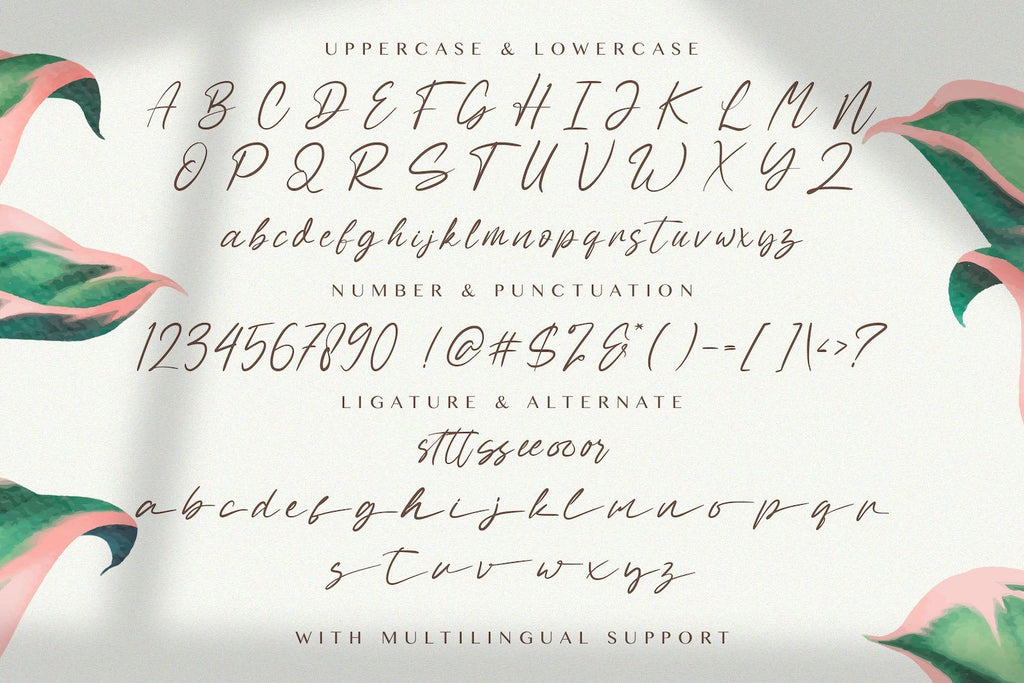 UPPERCASE & LOWERCASE
A B C D E F G H I J K L M N
O P Q R S T U V W X Y Z
abcdefghijklmnopqrstuvwxyz
NUMBER & PUNCTUATION
1234567890 !@#$%&*( )-=[ ]\<>?
LIGATURE & ALTERNATE
stttsseeooor
abcdefghijklmnopqr
stuvwxyz
WITH MULTILINGUAL SUPPORT